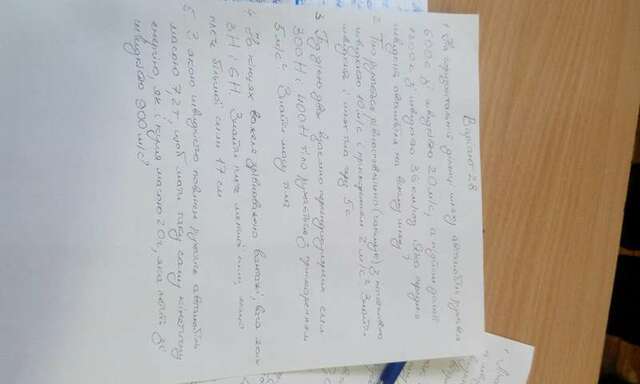 Варіант 28
1. На горизонтальній ділянці шляху автомобіль рухався
600с зі швидкістю 20м/с, а підйом долав
зі швидкістю 36 км/год. Яка середня
швидкість автомобіля на всьому шляху?
2. Тіло рухається рівносповільнено з початковою
швидкістю 10м/с і прискоренням 2м/с². Знайти
швидкість і шлях тіла через 5с
3. Під дією двох взаємно перпендикулярних сил
300Н і 400Н тіло рухається з прискоренням
5м/с². Знайти масу тіла
4. На кінцях важеля зрівноважено вантажі, вага яких
3Н і 6Н. Знайти плече меншої сили, якщо
плече більшої сили 17 см
5. З якою швидкістю повинен рухатись автомобіль
масою 7,2т щоб мати таку саму кінетичну
енергію, як і куля масою 20г, яка летить зі
швидкістю 900 м/с?